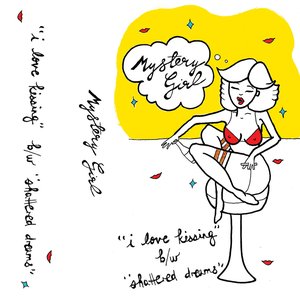 "i love kissing" b/w "shattered dreams"
Mystery Girl
Mystery
Girl
"i love kissing"
b/w
"shattered dreams"